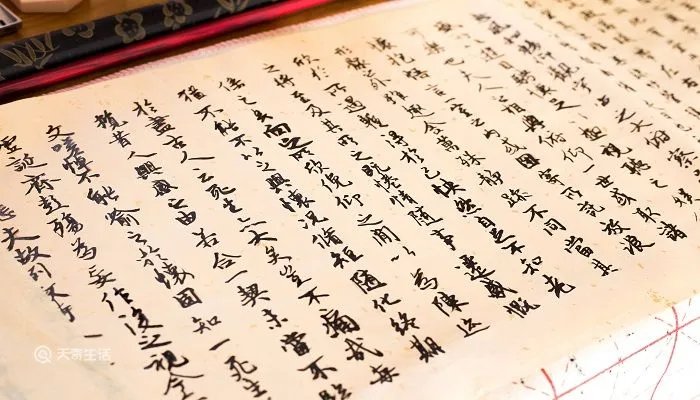 風和暢仰觀宇宙之大俯察
遊目騁懷足以極視聽之
也夫人之相與俯仰一世或取諸
懷抱悟言一室之內或因寄所託放浪
形骸之外雖趣舍萬殊靜躁不同當其
欣於所遇暫得於己怏然自足不知老
之將至及其所之既惓情隨事遷感慨
係之矣向之所欣俛仰之間以為陳迹
猶不能不以之興懷況脩短隨化終期
於盡古人云死生亦大矣豈不痛哉每
攬昔人興感之由若合一契未嘗不臨
文嗟悼不能喻之於懷固知一死生
虛誕齊彭殤為妄作後之視今
悲夫故列
天奇生活